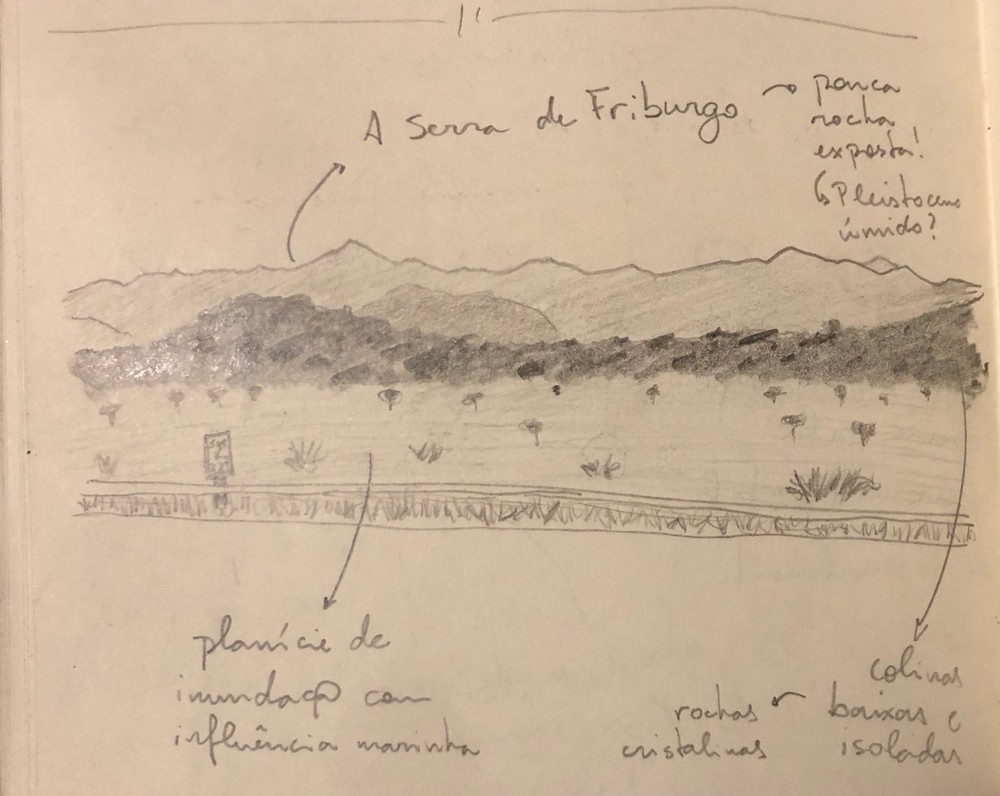 A Serra de Friburgo → pouca
rocha
exposta!
↳ Pleistoceno
úmido?
planície de
inundação com
influência marinha
colinas
baixas e
isoladas
rochas
cristalinas